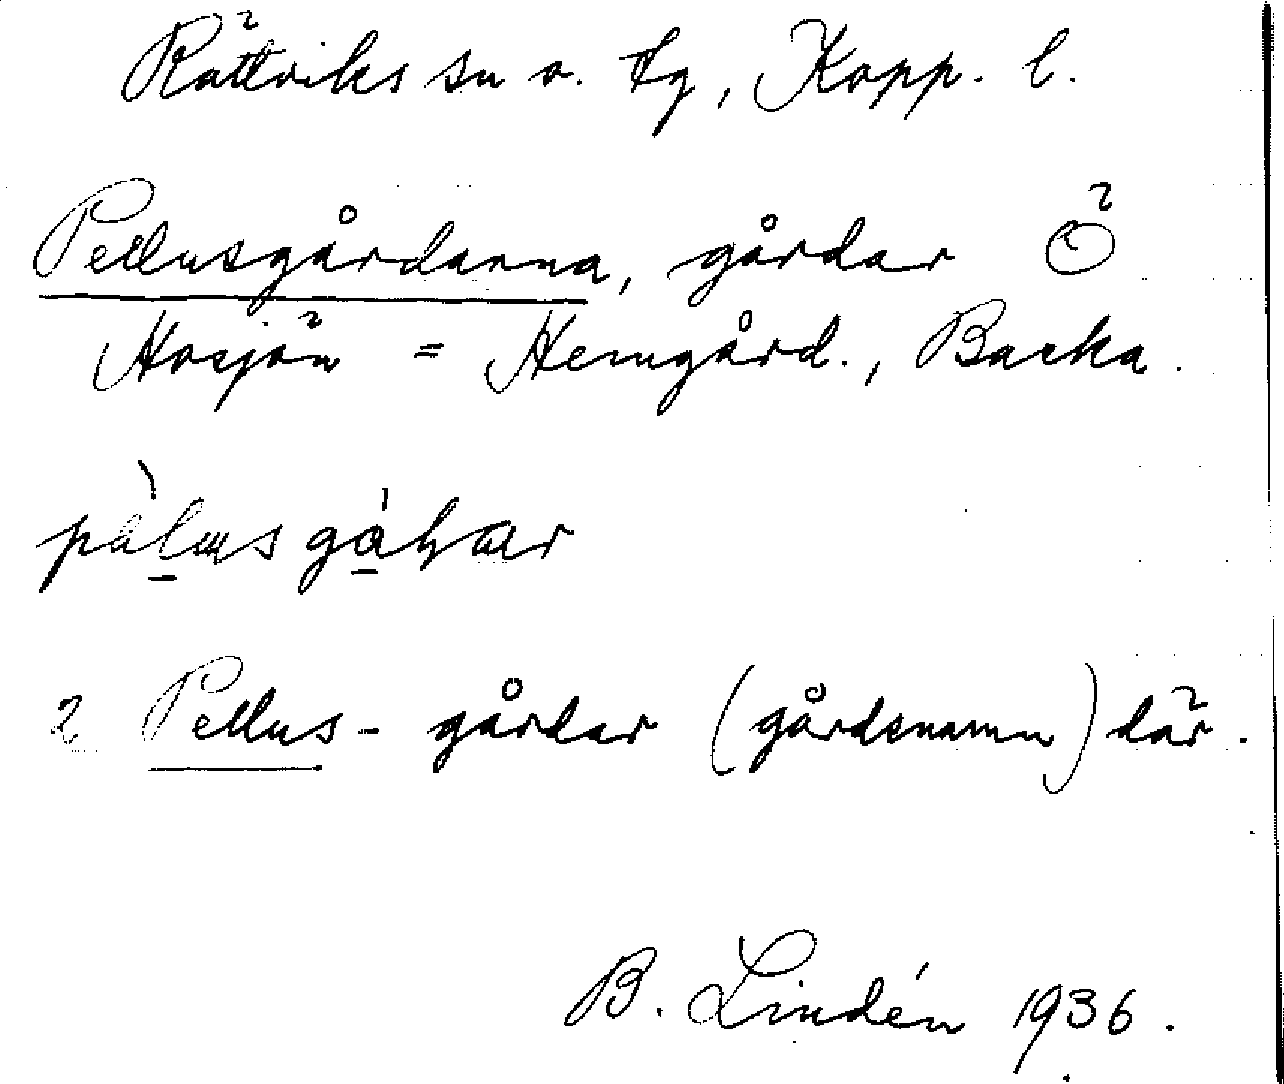 Rättviks sn o. tg, Kopp. l.
Pellusgårdarna, gårdar Ö
Hosjön = Hemgård., Backa.
2 Pellus- gårdar (gårdsnamn) där.
B. Lindén 1936.